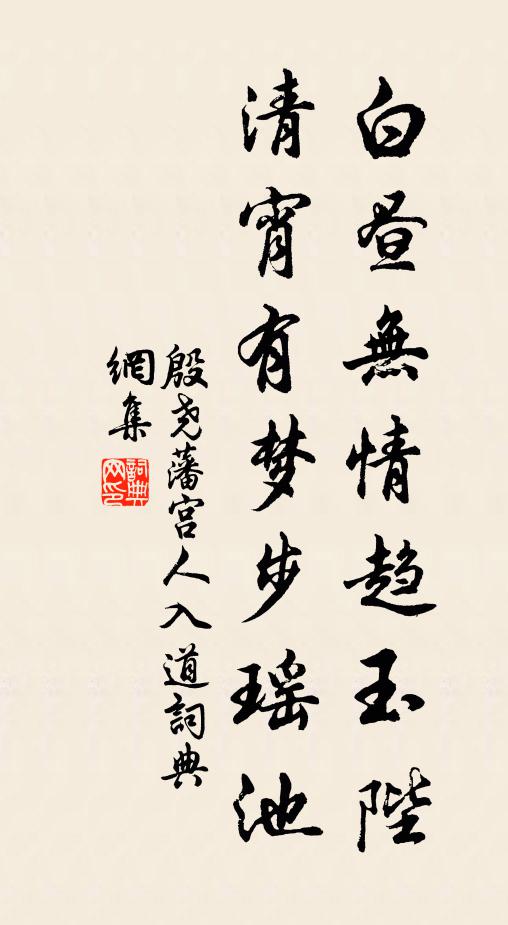 白昼無情趋玉陛
清宵有梦步瑶池
殷尧藩宫人入道詞典
網集
詞典
网印